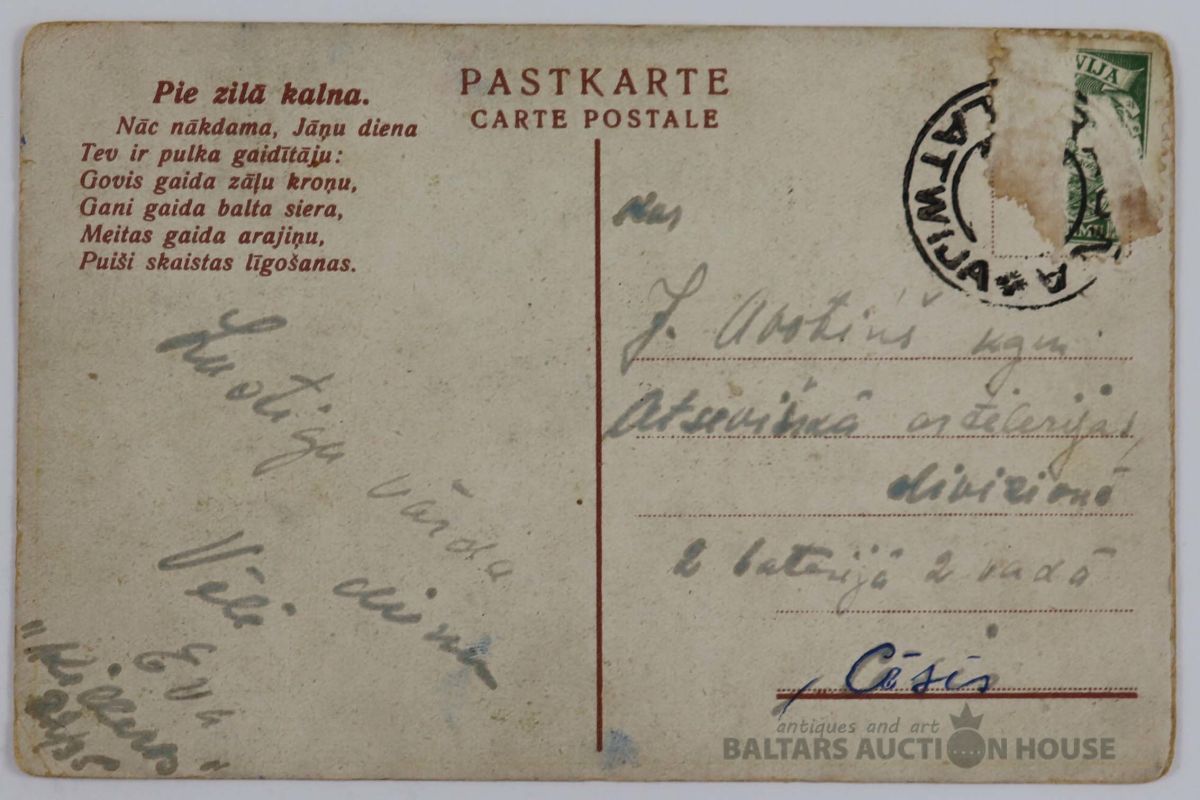 Pie zilā kalna.
Nāc nākdama, Jāņu diena
Tev ir pulka gaidītāju:
Govis gaida zāļu kroņu,
Gani gaida balta siera,
Meitas gaida arajiņu,
Puiši skaistas līgošanas.
PASTKARTE
CARTE POSTALE
VIJA
LATWIJA
J. Avotiņš kgm
Atsevišķā artilerijas
divizionā
2 baterijā 2 vadā
Cēsis
Lustīgu
vārda
dienu
Vēli
antiques and art
BALTARS AUCTION HOUSE